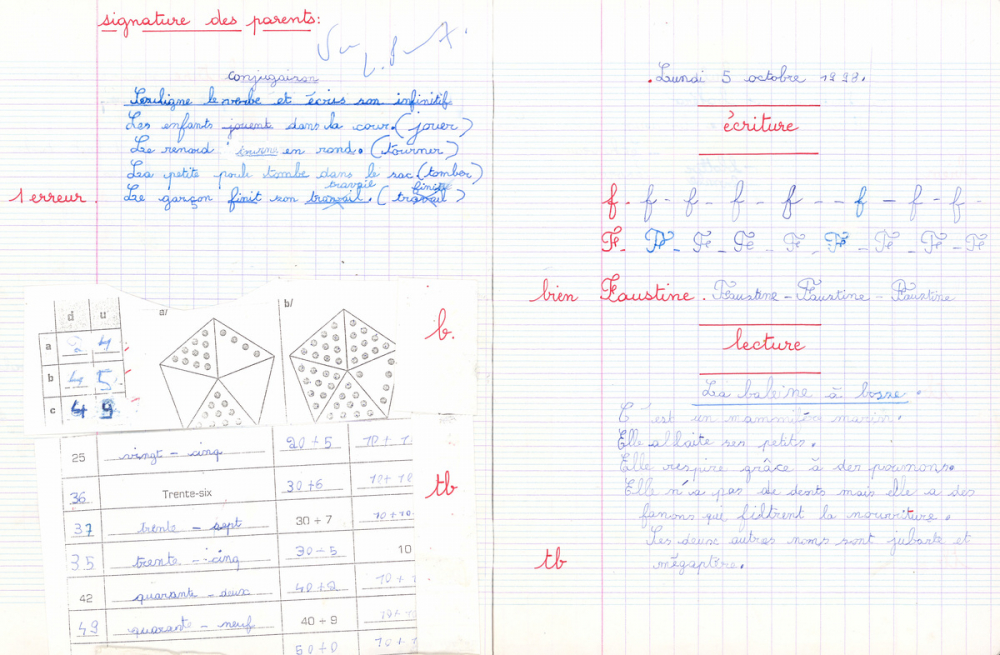 signature des parents:
conjugaison
Souligne le verbe et écris son infinitif
Les enfants jouent dans la cour. (jouer)
Le renard tourne en rond. (tourner)
La petite poule tombe dans le sac (tomber)
travail finir
1 erreur. Le garçon finit son travail. (travail)
d u
a 4
b 4 5
c 4 9
a/
b/
b.
25 vingt - cinq 20 + 5 10 + 1
36 Trente-six 30+6 10+ 10
37 trente - sept 30 + 7 10+10
35 trente - cinq 30 - 5 10
42 quarante - deux 40+2 10 + 1
49 quarante - neuf 40 + 9 10+ 10
50+0 10+1
tb
Lundi 5 octobre 1998.
écriture
f. f - f - f - f - - f - f - f -
F. F - F - F - F - F - F - F - F
bien Faustine. Faustine - Faustine - Faustine
lecture
La baleine à bosse.
C'est un mammifère marin.
Elle allaite ses petits.
Elle respire grâce à des poumons.
Elle n'a pas de dents mais elle a des
fanons qui filtrent la nourriture.
Ses deux autres noms sont jubarte et
tb mégaptère.